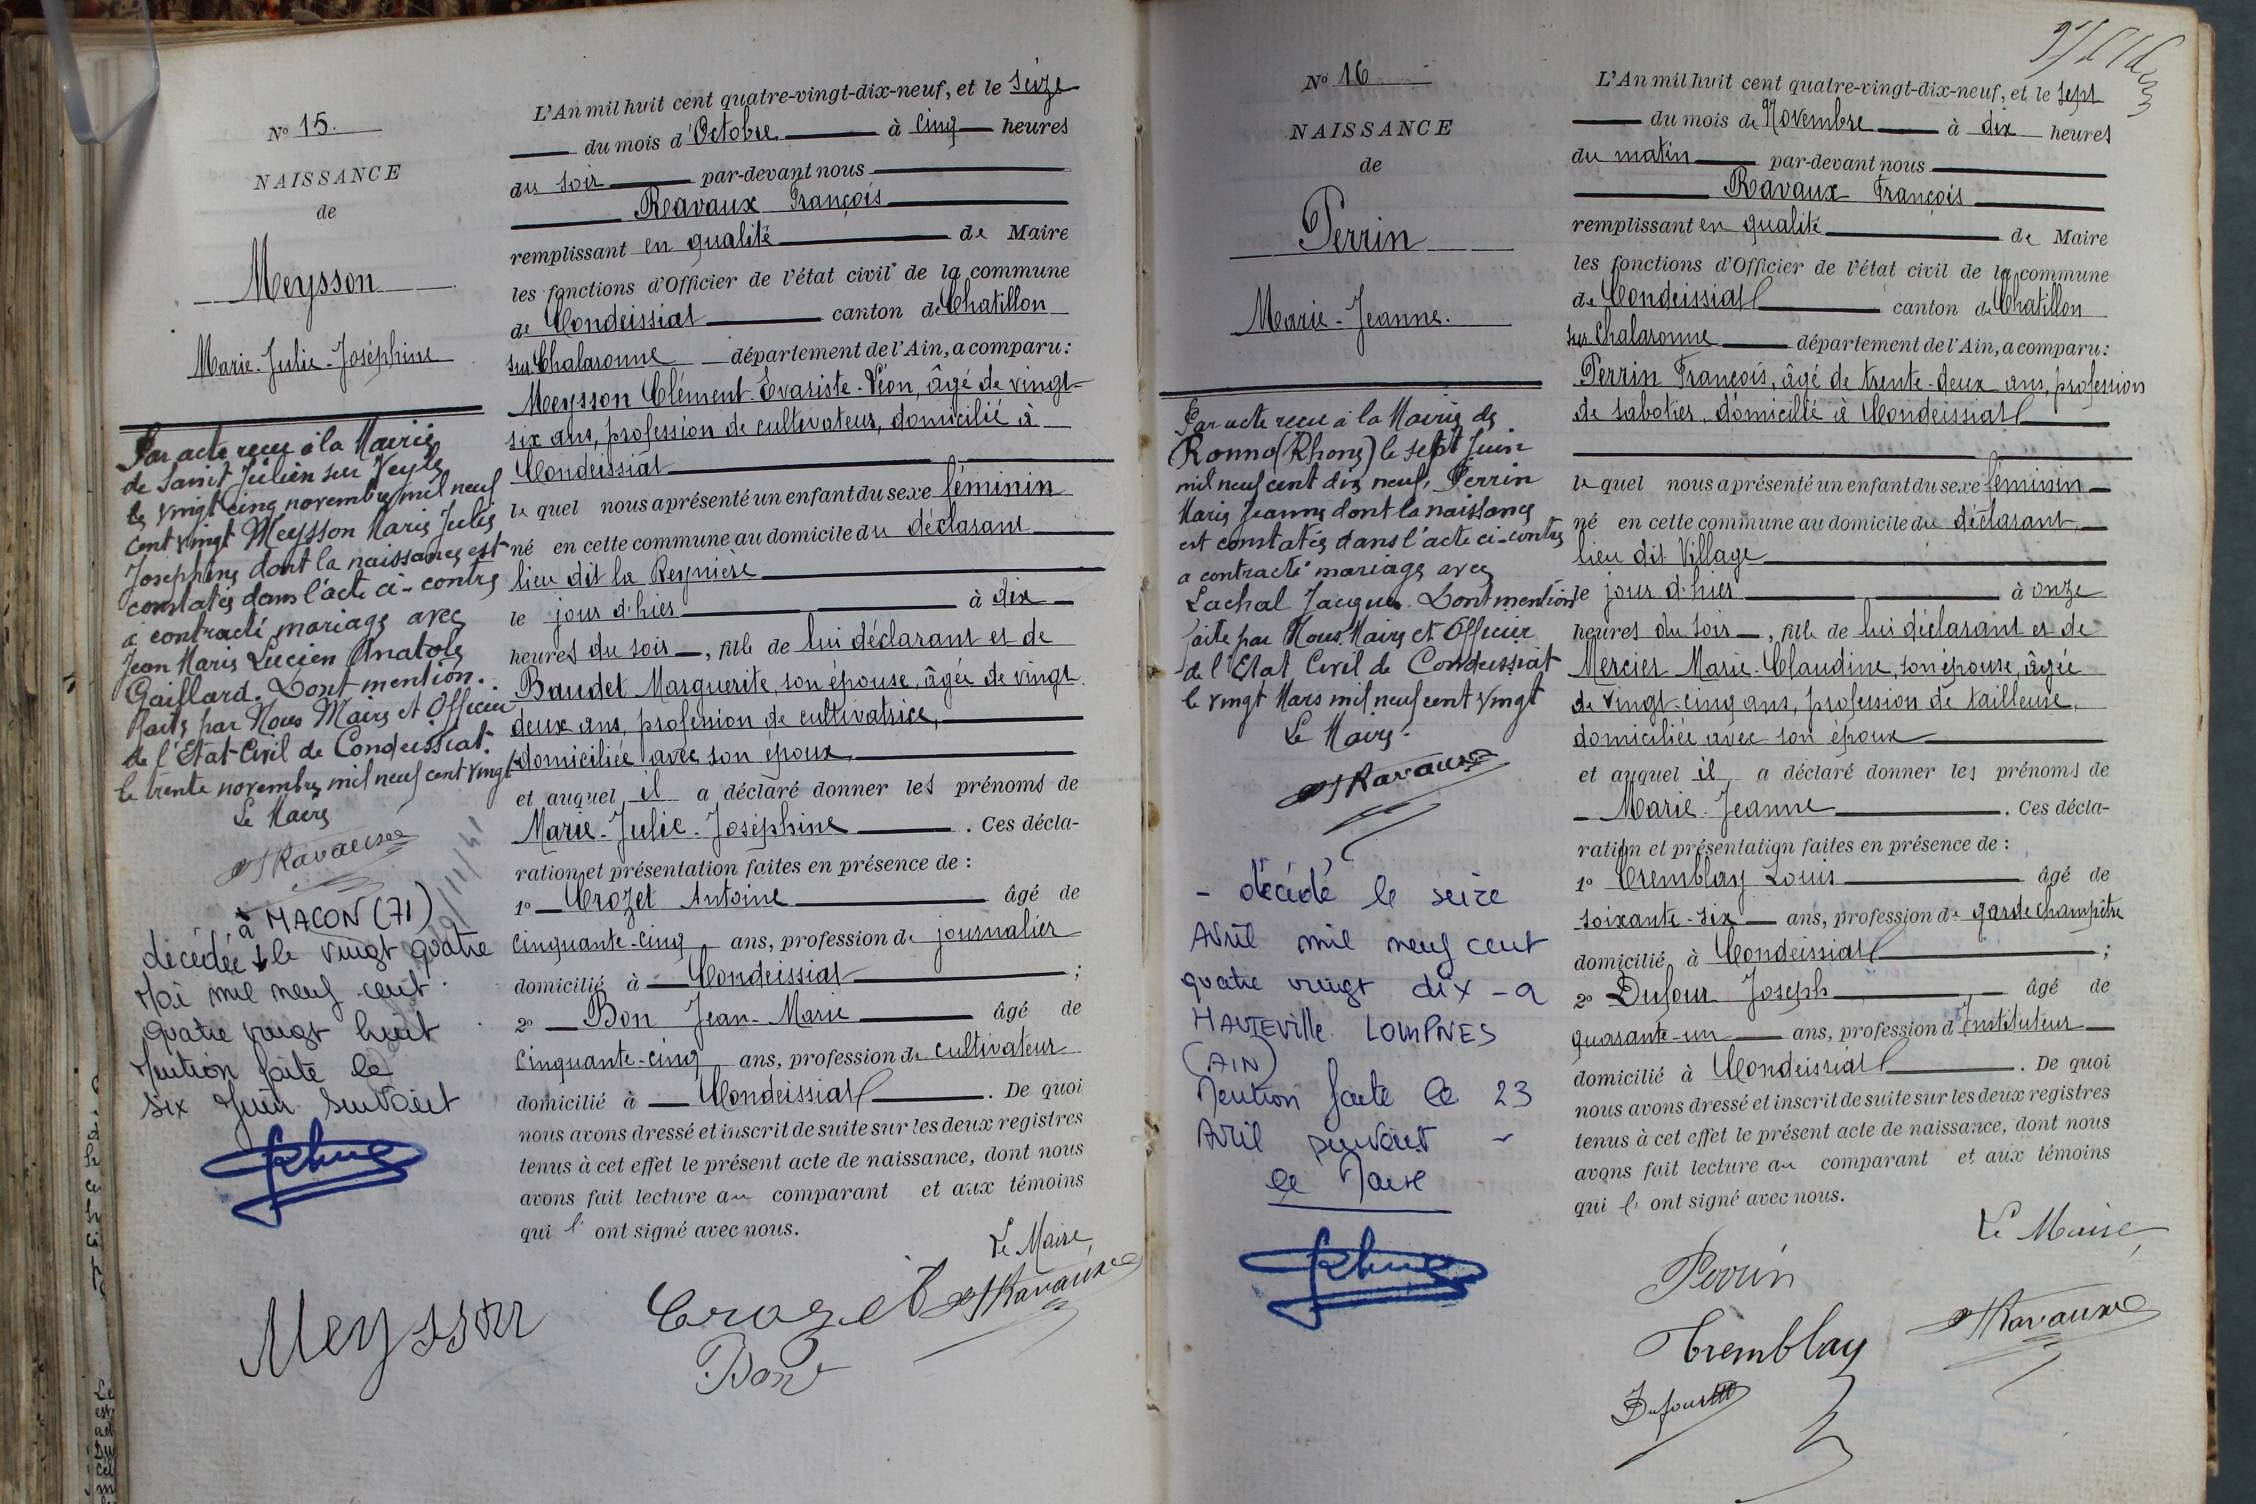 N° 15.
NAISSANCE
de
Meysson
Marie-Julie-Joséphine
Par acte reçu à la Mairie
de Saint Julien sur Veyle
le vingt cinq novembre mil neuf
cent vingt Meysson Marie Julie
Joséphine dont la naissance est
constatée dans l'acte ci-contre
a contracté mariage avec
Jean Marie Lucien Anatole
Gaillard. Dont mention.
faite par Nous Maire et Officier
de l'Etat-Civil de Condeissiat.
le trente novembre mil neuf cent vingt
Le Maire
Ravaux
à MACON (71)
décédée le vingt quatre
Mai mil neuf cent
quatre vingt huit
Mention faite le
six Juin suivant
L'An mil huit cent quatre-vingt-dix-neuf, et le seize
du mois d'Octobre à cinq heures
du soir par-devant nous
Ravaux François
remplissant en qualité de Maire
les fonctions d'Officier de l'état civil de la commune
de Condeissiat canton de Chatillon
sur Chalaronne département de l'Ain, a comparu :
Meysson Clément-Evariste-Léon, âgé de vingt-
six ans, profession de cultivateur, domicilié à
Condeissiat
le quel nous a présenté un enfant du sexe féminin
né en cette commune au domicile du déclarant
lieu dit la Reynière
le jour d'hier à dix
heures du soir, fille de lui déclarant et de
Baudet Marguerite, son épouse, âgée de vingt
deux ans, profession de cultivatrice,
domiciliée avec son époux,
et auquel il a déclaré donner les prénoms de
Marie-Julie-Joséphine. Ces décla-
ration et présentation faites en présence de :
1° Crozet Antoine âgé de
cinquante-cinq ans, profession de journalier
domicilié à Condeissiat ;
2° Bon Jean-Marie âgé de
cinquante-cinq ans, profession de cultivateur
domicilié à Condeissiat. De quoi
nous avons dressé et inscrit de suite sur les deux registres
tenus à cet effet le présent acte de naissance, dont nous
avons fait lecture au comparant et aux témoins
qui l'ont signé avec nous.
Le Maire,
Meysson
Crozet
Ravaux
Bon
N° 16
NAISSANCE
de
Perrin
Marie-Jeanne.
Par acte reçu à la Mairie de
Ronno (Rhône) le sept Juin
mil neuf cent dix neuf, Perrin
Marie Jeanne dont la naissance
est constatée dans l'acte ci-contre
a contracté mariage avec
Lachal Jacques. Dont mention
faite par Nous Maire et Officier
de l'Etat Civil de Condeissiat
le vingt Mars mil neuf cent vingt
Le Maire.
Ravaux
- décédé le seize
Avril mil neuf cent
quatre vingt dix - a
HAUTEVILLE LOMPNES
(AIN)
Mention faite le 23
Avril suivant -
le Maire
L'An mil huit cent quatre-vingt-dix-neuf, et le sept
du mois de Novembre à dix heures
du matin par-devant nous
Ravaux François
remplissant en qualité de Maire
les fonctions d'Officier de l'état civil de la commune
de Condeissiat canton de Chatillon
sur Chalaronne département de l'Ain, a comparu :
Perrin François, âgé de trente-deux ans, profession
de sabotier, domicilié à Condeissiat
le quel nous a présenté un enfant du sexe féminin
né en cette commune au domicile du déclarant,
lieu dit Village
le jour d'hier à onze
heures du soir, fille de lui déclarant et de
Mercier Marie-Claudine, son épouse, âgée
de vingt-cinq ans, profession de tailleuse,
domiciliée avec son époux
et auquel il a déclaré donner les prénoms de
Marie-Jeanne. Ces décla-
ration et présentation faites en présence de :
1° Tremblay Louis âgé de
soixante-six ans, profession de garde champêtre
domicilié à Condeissiat ;
2° Dufour Joseph âgé de
quarante-un ans, profession d'Instituteur
domicilié à Condeissiat. De quoi
nous avons dressé et inscrit de suite sur les deux registres
tenus à cet effet le présent acte de naissance, dont nous
avons fait lecture au comparant et aux témoins
qui l'ont signé avec nous.
Le Maire,
Perrin
Ravaux
Tremblay
Dufour